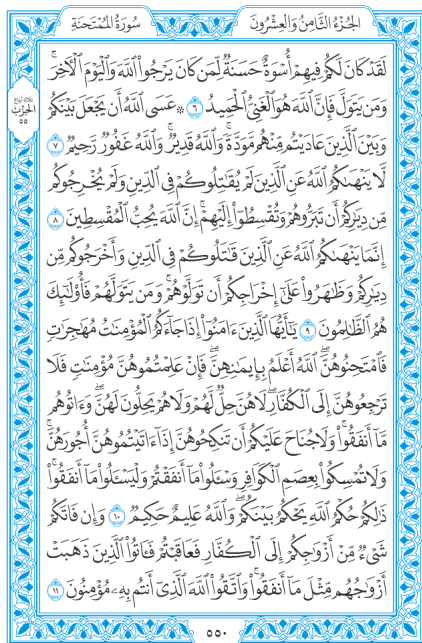 الجُزْءُ الثَّامِنُ وَالعِشْرُونَ
سُورَةُ المُمْتَحنَةِ
لَقَدْ كَانَ لَكُمْ فِيهِمْ أُسْوَةٌ حَسَنَةٌ لِّمَن كَانَ يَرْجُوا۟ ٱللَّهَ وَٱلْيَوْمَ ٱلْأَخِرَۚ
وَمَن يَتَوَلَّ فَإِنَّ ٱللَّهَ هُوَ ٱلْغَنِىُّ ٱلْحَمِيدُ ٦ ۞ عَسَى ٱللَّهُ أَن يَجْعَلَ بَيْنَكُمْ
وَبَيْنَ ٱلَّذِينَ عَادَيْتُم مِّنْهُم مَّوَدَّةًۚ وَٱللَّهُ قَدِيرٌۚ وَٱللَّهُ غَفُورٌ رَّحِيمٌ ٧
لَّا يَنْهَىٰكُمُ ٱللَّهُ عَنِ ٱلَّذِينَ لَمْ يُقَٰتِلُوكُمْ فِى ٱلدِّينِ وَلَمْ يُخْرِجُوكُم
مِّن دِيَٰرِكُمْ أَن تَبَرُّوهُمْ وَتُقْسِطُوٓا۟ إِلَيْهِمْۚ إِنَّ ٱللَّهَ يُحِبُّ ٱلْمُقْسِطِينَ ٨
إِنَّمَا يَنْهَىٰكُمُ ٱللَّهُ عَنِ ٱلَّذِينَ قَٰتَلُوكُمْ فِى ٱلدِّينِ وَأَخْرَجُوكُم مِّن
دِيَٰرِكُمْ وَظَٰهَرُوا۟ عَلَىٰٓ إِخْرَاجِكُمْ أَن تَوَلَّوْهُمْۚ وَمَن يَتَوَلَّهُمْ فَأُو۟لَٰٓئِكَ
هُمُ ٱلظَّٰلِمُونَ ٩ يَٰٓأَيُّهَا ٱلَّذِينَ ءَامَنُوٓا۟ إِذَا جَآءَكُمُ ٱلْمُؤْمِنَٰتُ مُهَٰجِرَٰتٍ
فَٱمْتَحِنُوهُنَّۖ ٱللَّهُ أَعْلَمُ بِإِيمَٰنِهِنَّۖ فَإِنْ عَلِمْتُمُوهُنَّ مُؤْمِنَٰتٍ فَلَا
تَرْجِعُوهُنَّ إِلَى ٱلْكُفَّارِۖ لَا هُنَّ حِلٌّ لَّهُمْ وَلَا هُمْ يَحِلُّونَ لَهُنَّۖ وَءَاتُوهُم
مَّآ أَنفَقُوا۟ۚ وَلَا جُنَاحَ عَلَيْكُمْ أَن تَنكِحُوهُنَّ إِذَآ ءَاتَيْتُمُوهُنَّ أُجُورَهُنَّۚ
وَلَا تُمْسِكُوا۟ بِعِصَمِ ٱلْكَوَافِرِ وَسْـَٔلُوا۟ مَآ أَنفَقْتُمْ وَلْيَسْـَٔلُوا۟ مَآ أَنفَقُوا۟ۚ
ذَٰلِكُمْ حُكْمُ ٱللَّهِ يَحْكُمُ بَيْنَكُمْۚ وَٱللَّهُ عَلِيمٌ حَكِيمٌ ١٠ وَإِن فَاتَكُمْ
شَىْءٌ مِّنْ أَزْوَٰجِكُمْ إِلَى ٱلْكُفَّارِ فَعَاقَبْتُمْ فَـَٔاتُوا۟ ٱلَّذِينَ ذَهَبَتْ
أَزْوَٰجُهُم مِّثْلَ مَآ أَنفَقُوا۟ۚ وَٱتَّقُوا۟ ٱللَّهَ ٱلَّذِىٓ أَنتُم بِهِۦ مُؤْمِنُونَ ١١
الحِزْب
٥٥
٥٥٠